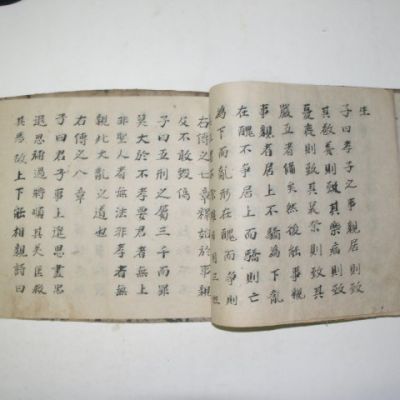 生
子曰孝子之事親居則致
其敬養則致其樂病則致
憂喪則致其哀祭則致其
嚴五者備矣然後能事親
事親者居上不驕為下亂
在醜不爭居上而驕則亡
為下而亂形在醜而爭則
用三牲
右傳之七章釋始於事親
及不敢毀傷
子曰五刑之屬三千而罪
莫大於不孝要君者無上
非聖人者無法非孝者無
親此大亂之道也
右傳之八章
子曰君子事上進思盡忠
退思補過將順其美匡救
其惡故上下能相親詩曰